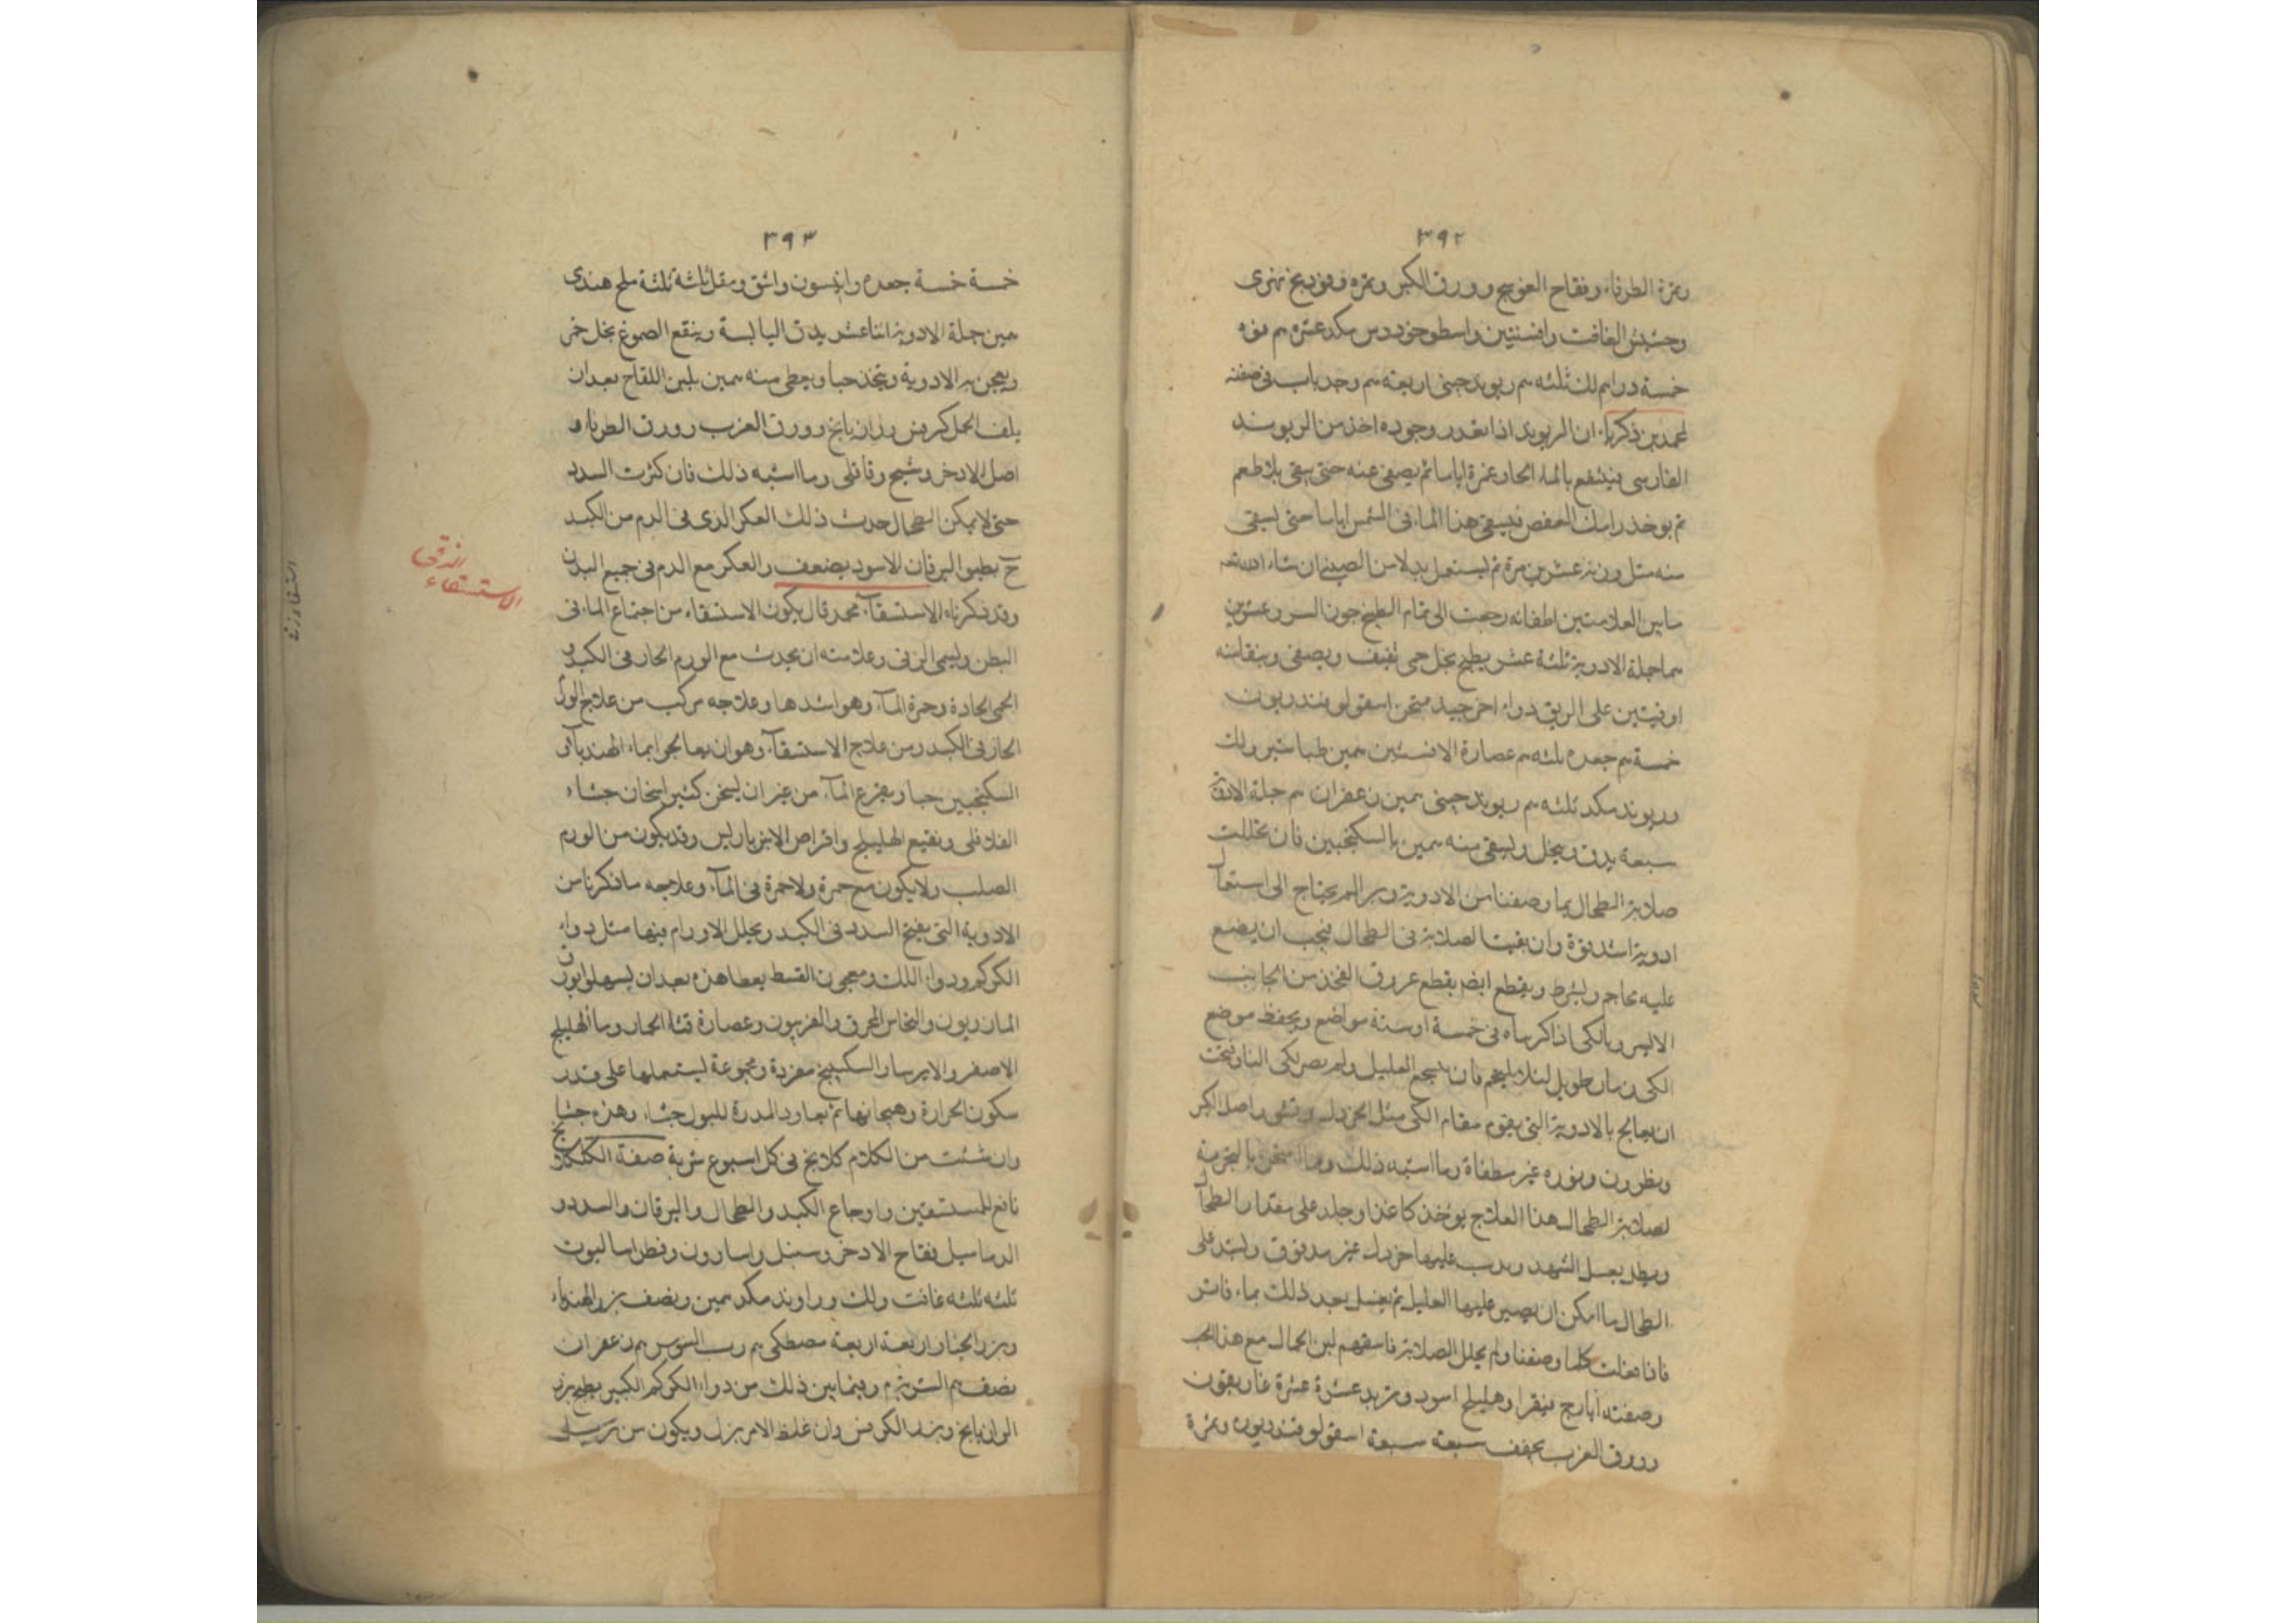 ٣٩٢
وثمرة الطرفاء وفقاح العوسج وورق الكبر وثمره وفودينج نهرى
وحشيش الغافت وافسنتين واسطوخودوس مكد عشره م فوه
خمسة دراهم لك ثلثه م ريوند چينى اربعه م وجد باب فى صفته
لمحمد بن زكريا ان الريوند اذا تعذر وجوده اخذ من الريوند
الفارسى فينقع بالماء الحار غمرة اياما ثم يصفى عنه حتى يبقى بلا طعم
ثم يوخذ رامك العفص فيسقى هذا الماء فى الشمس اياما حتى يسقى
منه مثل وزنه عشرين مرة ثم يستعمل بدلا من الصينى ان شاء الله
ما بين العلامتين رجعت الى تمام الطبخ
جملة الادوية ثلثة عشر يطبخ بخل حتى ويصفى
اوقيتين على الريق دواء اخر جيد ممتحن اسقولوقندريون
خمسة م جعده ثلثه م عصارة الافسنتين مين طباشير ولك
وريوند مكد ثلثه م ريوند چينى مين زعفران م جملة الادوية
سبعة يدق وينخل ويسقى منه مين بالسكنجبين فان تحللت
صلابة الطحال بما وصفنا من الادوية وبرا لم يحتاج الى استعمال
ادوية اشد قوة وان بقيت الصلابة فى الطحال فيجب ان يضع
عليه محاجم ويشرط ويقطع ايضا بقطع عروق الفخذ من الجانب
الايسر وبالكى اذا كويناه فى خمسة او ستة مواضع ويحفظ موضع
الكى زمان طويل لئلا يلتحم فان لم العليل ولم يصبر لكى النار فيجب
ان يعالج بالادوية التى يقوم مقام الكى مثل الخردل واصل الكبر
ونطرون ونوره غير مطفاة وما اشبه ذلك بالتجربة
لصلابة الطحال هذا العلاج يوخذ كاغذ او جلد على مقدار الطحال
ويطلى بعسل الشهد ويذر عليها خردل غير مدقوق ويشد على
الطحال ما امكن ان يصبر عليها العليل ثم يغسل بعد ذلك بماء فاتر
فاذا فعلت كلما وصفنا ولم يحلل الصلابة فاسقهم لبن الجمال مع هذا الحب
وصفته ايارج فيقرا وهليلج اسود وتربد عشرة عشرة غاريقون
وورق الغرب يجفف سبعة سبعة اسقولوقندريون وثمرة
٣٩٣
خمسة خمسة جعده وانيسون واشق ومقل ثلثة ثلثة ملح هندى
مين جملة الادوية اثنا عشر يدق اليابسة وينقع الصموغ بخل خمر
ويعجن به الادوية ويتخذ حبا ويعطى منه مين بلبن اللقاح بعد ان
يلف الجمل كرفس ورازيانج وورق الغرب وورق الطرفاء و
اصل الاذخر وشيح وقاقلى وما اشبه ذلك فان كثرت السدد
حتى لا يمكن الطحال جذب ذلك العكر الذى فى الدم من الكبد
ح يظهر اليرقان الاسود بضعف والعكر مع الدم فى جميع البدن
وقد ذكرناه الاستسقاء محمد قال يكون الاستسقاء من اجتماع الماء فى
البطن ويسمى الزقى وعلامته ان يحدث مع الورم الحار فى الكبد و
الحمى الحادة وحمرة الماء وهو اشدها وعلاجه مركب من علاج الورم
الحار فى الكبد ومن علاج الاستسقاء وهو ان يعالجوا بماء الهندباء فى
السكنجبين حينا ويفرغ الماء من غير ان يسخن كثير اسخان حثيثا
القلاقلى ونقيع الهليلج واقراص الانبرباريس وقد يكون من الورم
الصلب ولا يكون مع حمرة ولا حمرة فى الماء وعلاجه ما ذكرنا من
الادوية التى يفتح السدد فى الكبد ويحلل الاورام فيها مثل دواء
الكركم ودواء اللك ومعجون القسط يعطا هذه بعد ان يسهلوا بورق
المازريون والنحاس المحرق والفربيون وعصارة قثاء الحمار وماء الهليلج
الاصفر والايرسا والسكبينج مفردة ومجموعة يستعملها على قدر
سكون الحرارة وهيجانها ثم يعاود المدرة للبول
وان شئت من الكلام كلانج فى كل اسبوع شربة صفة الكلكلانج
نافع للمستسقين واوجاع الكبد والطحال واليرقان والسدد و
الدماميل فقاح الاذخر وسنبل واسارون وفطراساليون
ثلثه ثلثه غافت ولك وراوند مكد مين ونصف بزر الهندباء
وبزر الخيار اربعة اربعة مصطكى م رب السوس م زعفران
نصف م الشربة م وفيما بين ذلك من دواء الكركم الكبير بطبيخ بزر
الرازيانج وبزر الكرفس وان غلظ الامر بزل ويكون من
الاستسقاء
الزقى